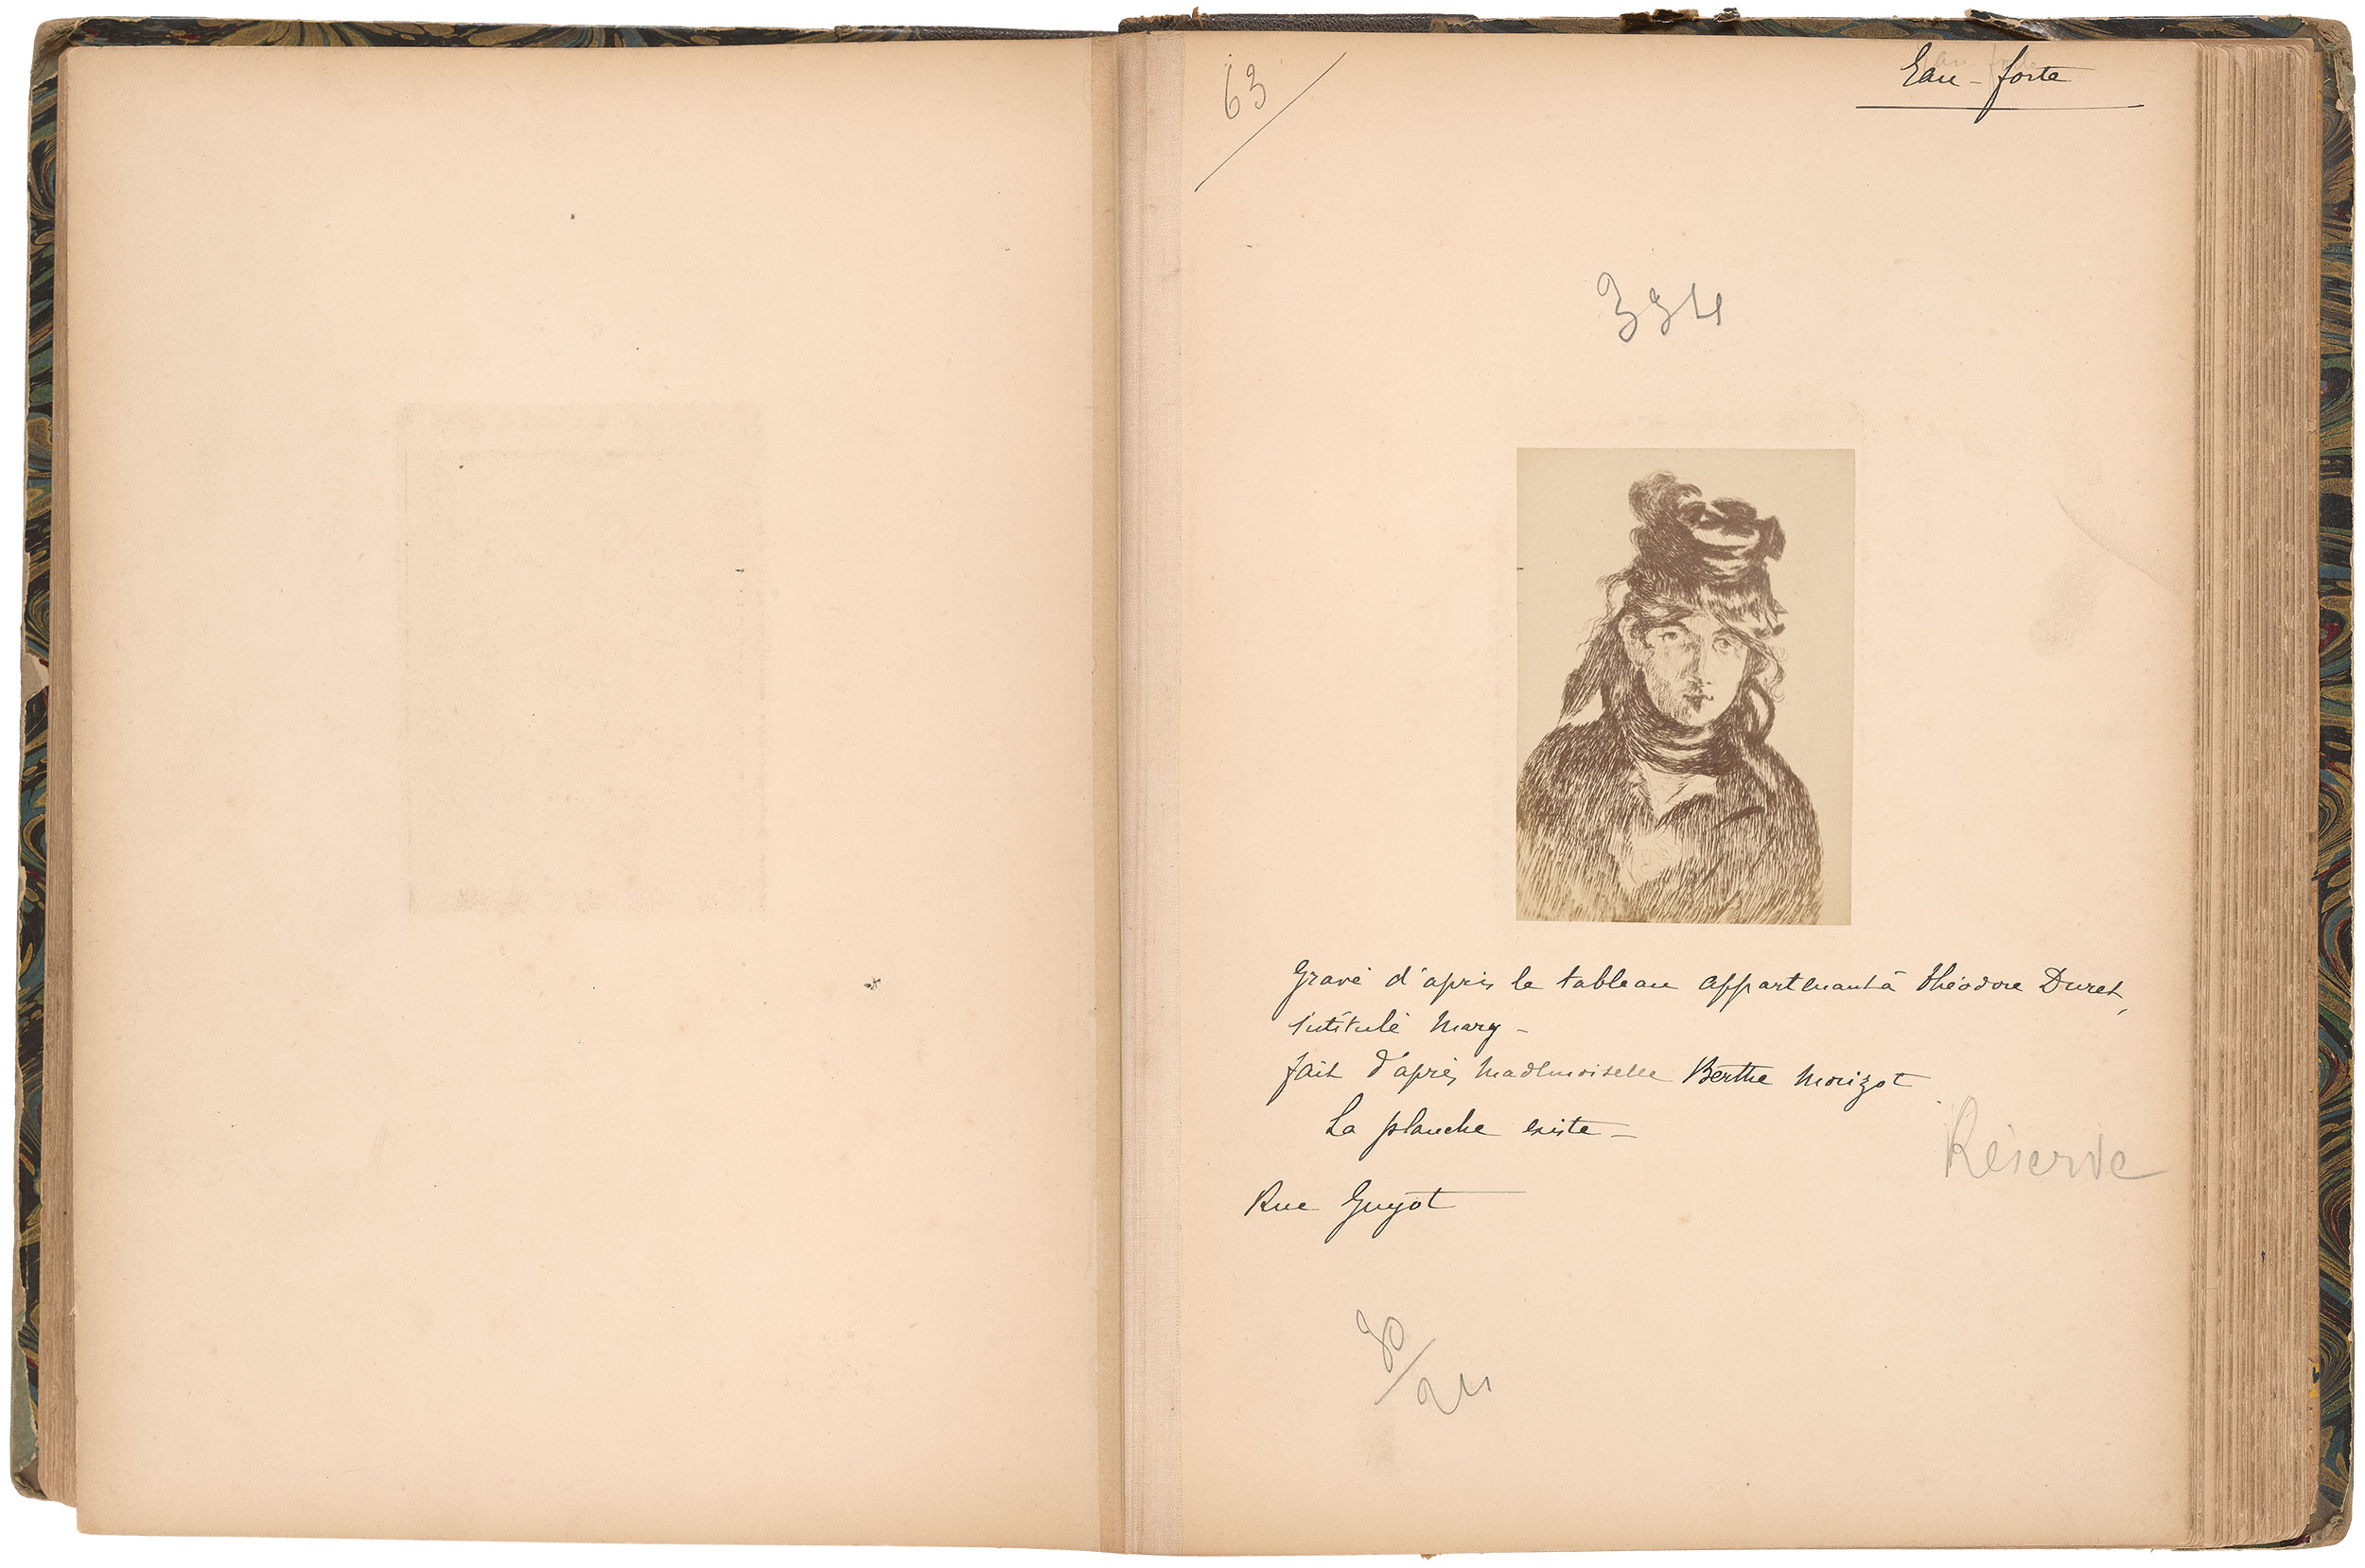 63
Eau-forte
334
Gravé d'après le tableau appartenant à théodore Duret,
intitulé Mary -
fait d'après Madlmoiselle Berthe Morizot
La planche existe -
Réserve
Rue Guyot